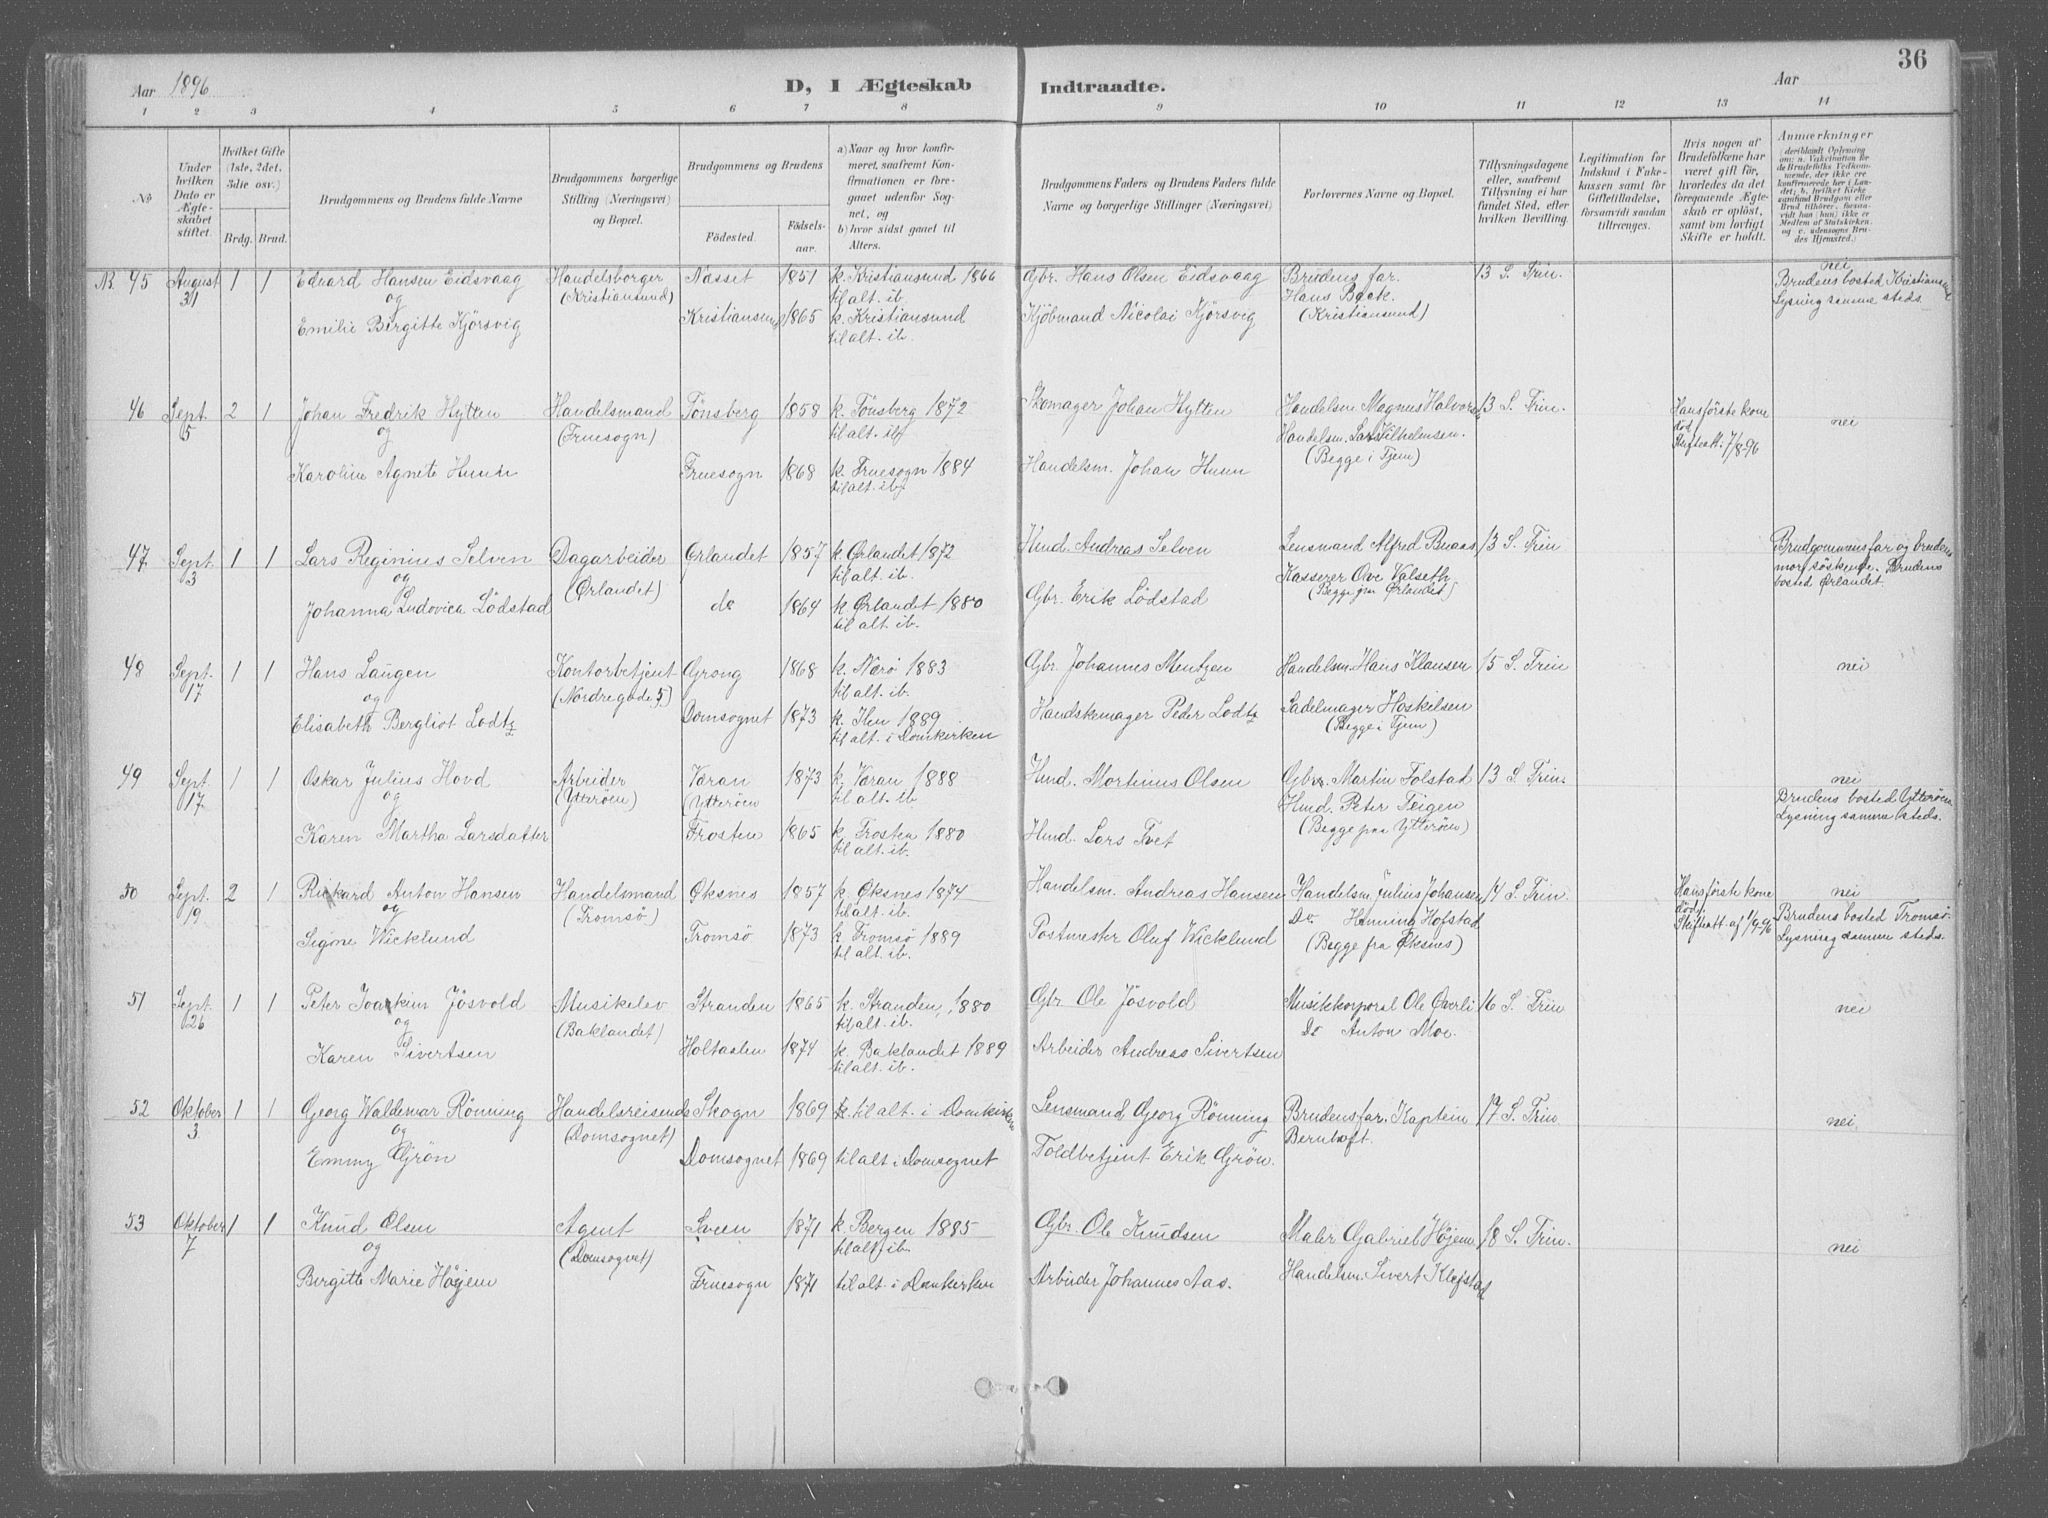 36
Aar 1896
D, I Ægteskab Indtraadte.
Aar
1 2 3 4 5 6 7 8 9 10 11 12 13 14
No
Under hvilken Dato er Ægteskabet stiftet.
Hvilket Gifte (1ste, 2det, 3die osv.)
Brdg. Brud.
Brudgommens og Brudens fulde Navne
Brudgommens borgerlige Stilling (Næringsvei) og Bopæl.
Brudgommens og Brudens
Fødested. Fødselsaar.
a) Naar og hvor konfirmeret, saafremt Konfirmationen er foregaaet udenfor Sognet, og
b) hvor sidst gaaet til Alters.
Brudgommens Faders og Brudens Faders fulde Navne og borgerlige Stillinger (Næringsvei)
Forlovernes Navne og Bopæl.
Tillysningsdagene eller, saafremt Tillysning ei har fundet Sted, efter hvilken Bevilling.
Legitimation for Indskud i Enkekassen samt for Giftetilladelse, forsaavidt saadan tiltrænges.
Hvis nogen af Brudefolkene har været gift før, hvorledes da det foregaaende Ægteskab er opløst, samt om lovligt Skifte er holdt.
Anmærkninger
45 August 31 1 1 Edvard Hansen Eidsvaag Handelsborger (Kristiansund) Nasset 1851 k. Kristiansund 1866 til alt. ib. Gbr. Hans Olsen Eidsvaag Brudens far. Hans Back. (Kristiansund) 13 S. Trin. nei Brudens bosted Kristiansund Lysning samme steds.
og
Emilie Birgitte Kjörsvig Kristiansund 1865 k. Kristiansund til alt. ib. Kjöbmand Nicolai Kjörsvig
46 Sept. 5 2 1 Johan Fredrik Hytten Handelsmand (Fruesogn) Tönsberg 1858 k. Tönsberg 1872 til alt. ib. Skomager Johan Hytten Handelsm. Magnus Halvorsen Handelsm. Lars Vilhelmsen. (Begge i Tjem) 13 S. Trin. Hans förste kone död Skifteatt. 7/8-96 nei
og
Karoline Agnete Husn Fruesogn 1868 k. Fruesogn 1884 til alt. ib. Handelsm. Johan Husn
47 Sept. 3 1 1 Lars Reginius Selven Dagarbeider (Ørlandet) Ørlandet 1857 k. Ørlandet 1872 til alt. ib. Hmd. Andreas Selven Lensmand Alfred Buaas Kasserer Ove Valseth (Begge paa Ørlandet) 13 S. Trin Brudgommens far og brudens mor söskende. Brudens bosted Ørlandet.
og
Johanna Ludovica Lödstad do 1864 k. Ørlandet 1880 til alt. ib. Gbr. Erik Lödstad
48 Sept. 17 1 1 Hans Laugen Kontorbetjent (Nordregade 5) Grong 1868 k. Nærö 1883 til alt. ib. Gbr. Johannes Mentzen Handelsm. Hans Klausen Sadelmager Hoskilsen (Begge i Tjem) 15 S. Trin nei
og
Elisabeth Bergliot Lodtz Domsognet 1873 k. Ilen 1889 til alt. i Domkirken Handskemager Peder Lodtz
49 Sept. 17 1 1 Oskar Julius Hovd Arbeider (Ytteröen) Varan (Ytteröen 1873 k. Varan 1888 til alt. ib. Hmd. Mortinus Olsen Gbr. Martin Folstad Hmd. Peter Teigen (Begge paa Ytteröen) 13 S. Trin. nei Brudens bosted Ytteröen Lysning samme steds.
og
Karen Martha Larsdatter Frosten 1865 k. Frosten 1880 til alt. ib. Hmd. Lars Tvet
50 Sept. 19 2 1 Rickard Anton Hansen Handelsmand (Tromsö) Øksnes 1857 k. Øksnes 1874 til alt. ib. Handelsm. Andreas Hansen Handelsm. Julius Johansen Do. Henning Hofstad (Begge fra Øksnes) 14 S. Trin. Hans förste kone död. Skifteatt. af 1/9-96 nei Brudens bosted Tromsö. Lysning samme steds.
og
Signe Wicklund Tromsö 1873 k. Tromsö 1889 til alt. ib. Postmester Oluf Wicklund
51 Sept. 26 1 1 Peter Joakim Jösvold Musikelev (Baklandet) Stranden 1865 k. Stranden, 1880 til alt. ib. Gbr. Ole Jösvold Musikkorporal Ole Överli Do Anton Moe. 16 S. Trin nei
og
Karen Sivertsen Holtaalen 1874 k. Baklandet 1889 til alt. ib. Arbeider Andreas Sivertsen
52 Oktober 3 1 1 Georg Waldemar Rönning Handelsreisende (Domsognet) Skogn 1869 til alt. i Domkirken Lensmand Georg Rönning Brudens far. Kaptein Bernhoft. 17 S. Trin nei
og
Emmy Grön Domsognet 1869 til alt i Domsognet Toldbetjent Erik Grön.
53 Oktober 7 1 1 Knud Olsen Agent (Domsognet) Sveen 1871 k. Bergen 1885 til alt. ib. Gbr. Ole Knudsen Maler Gabriel Höjem Handelsm. Sivert Klefstad 18 S. Trin. nei
og
Birgitte Marie Höjem Fruesogn 1871 til alt. i Domkirken Arbeider Johannes Aas.